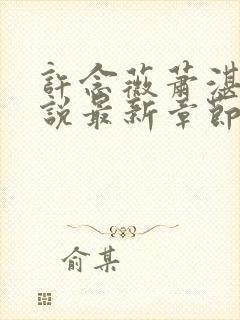 許念薇蕭湛
說最新章節
俞某